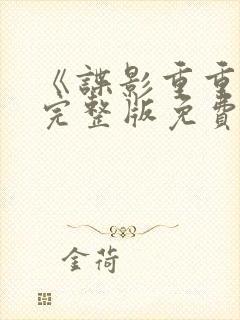 《諜影重重
完整版免費
金荷